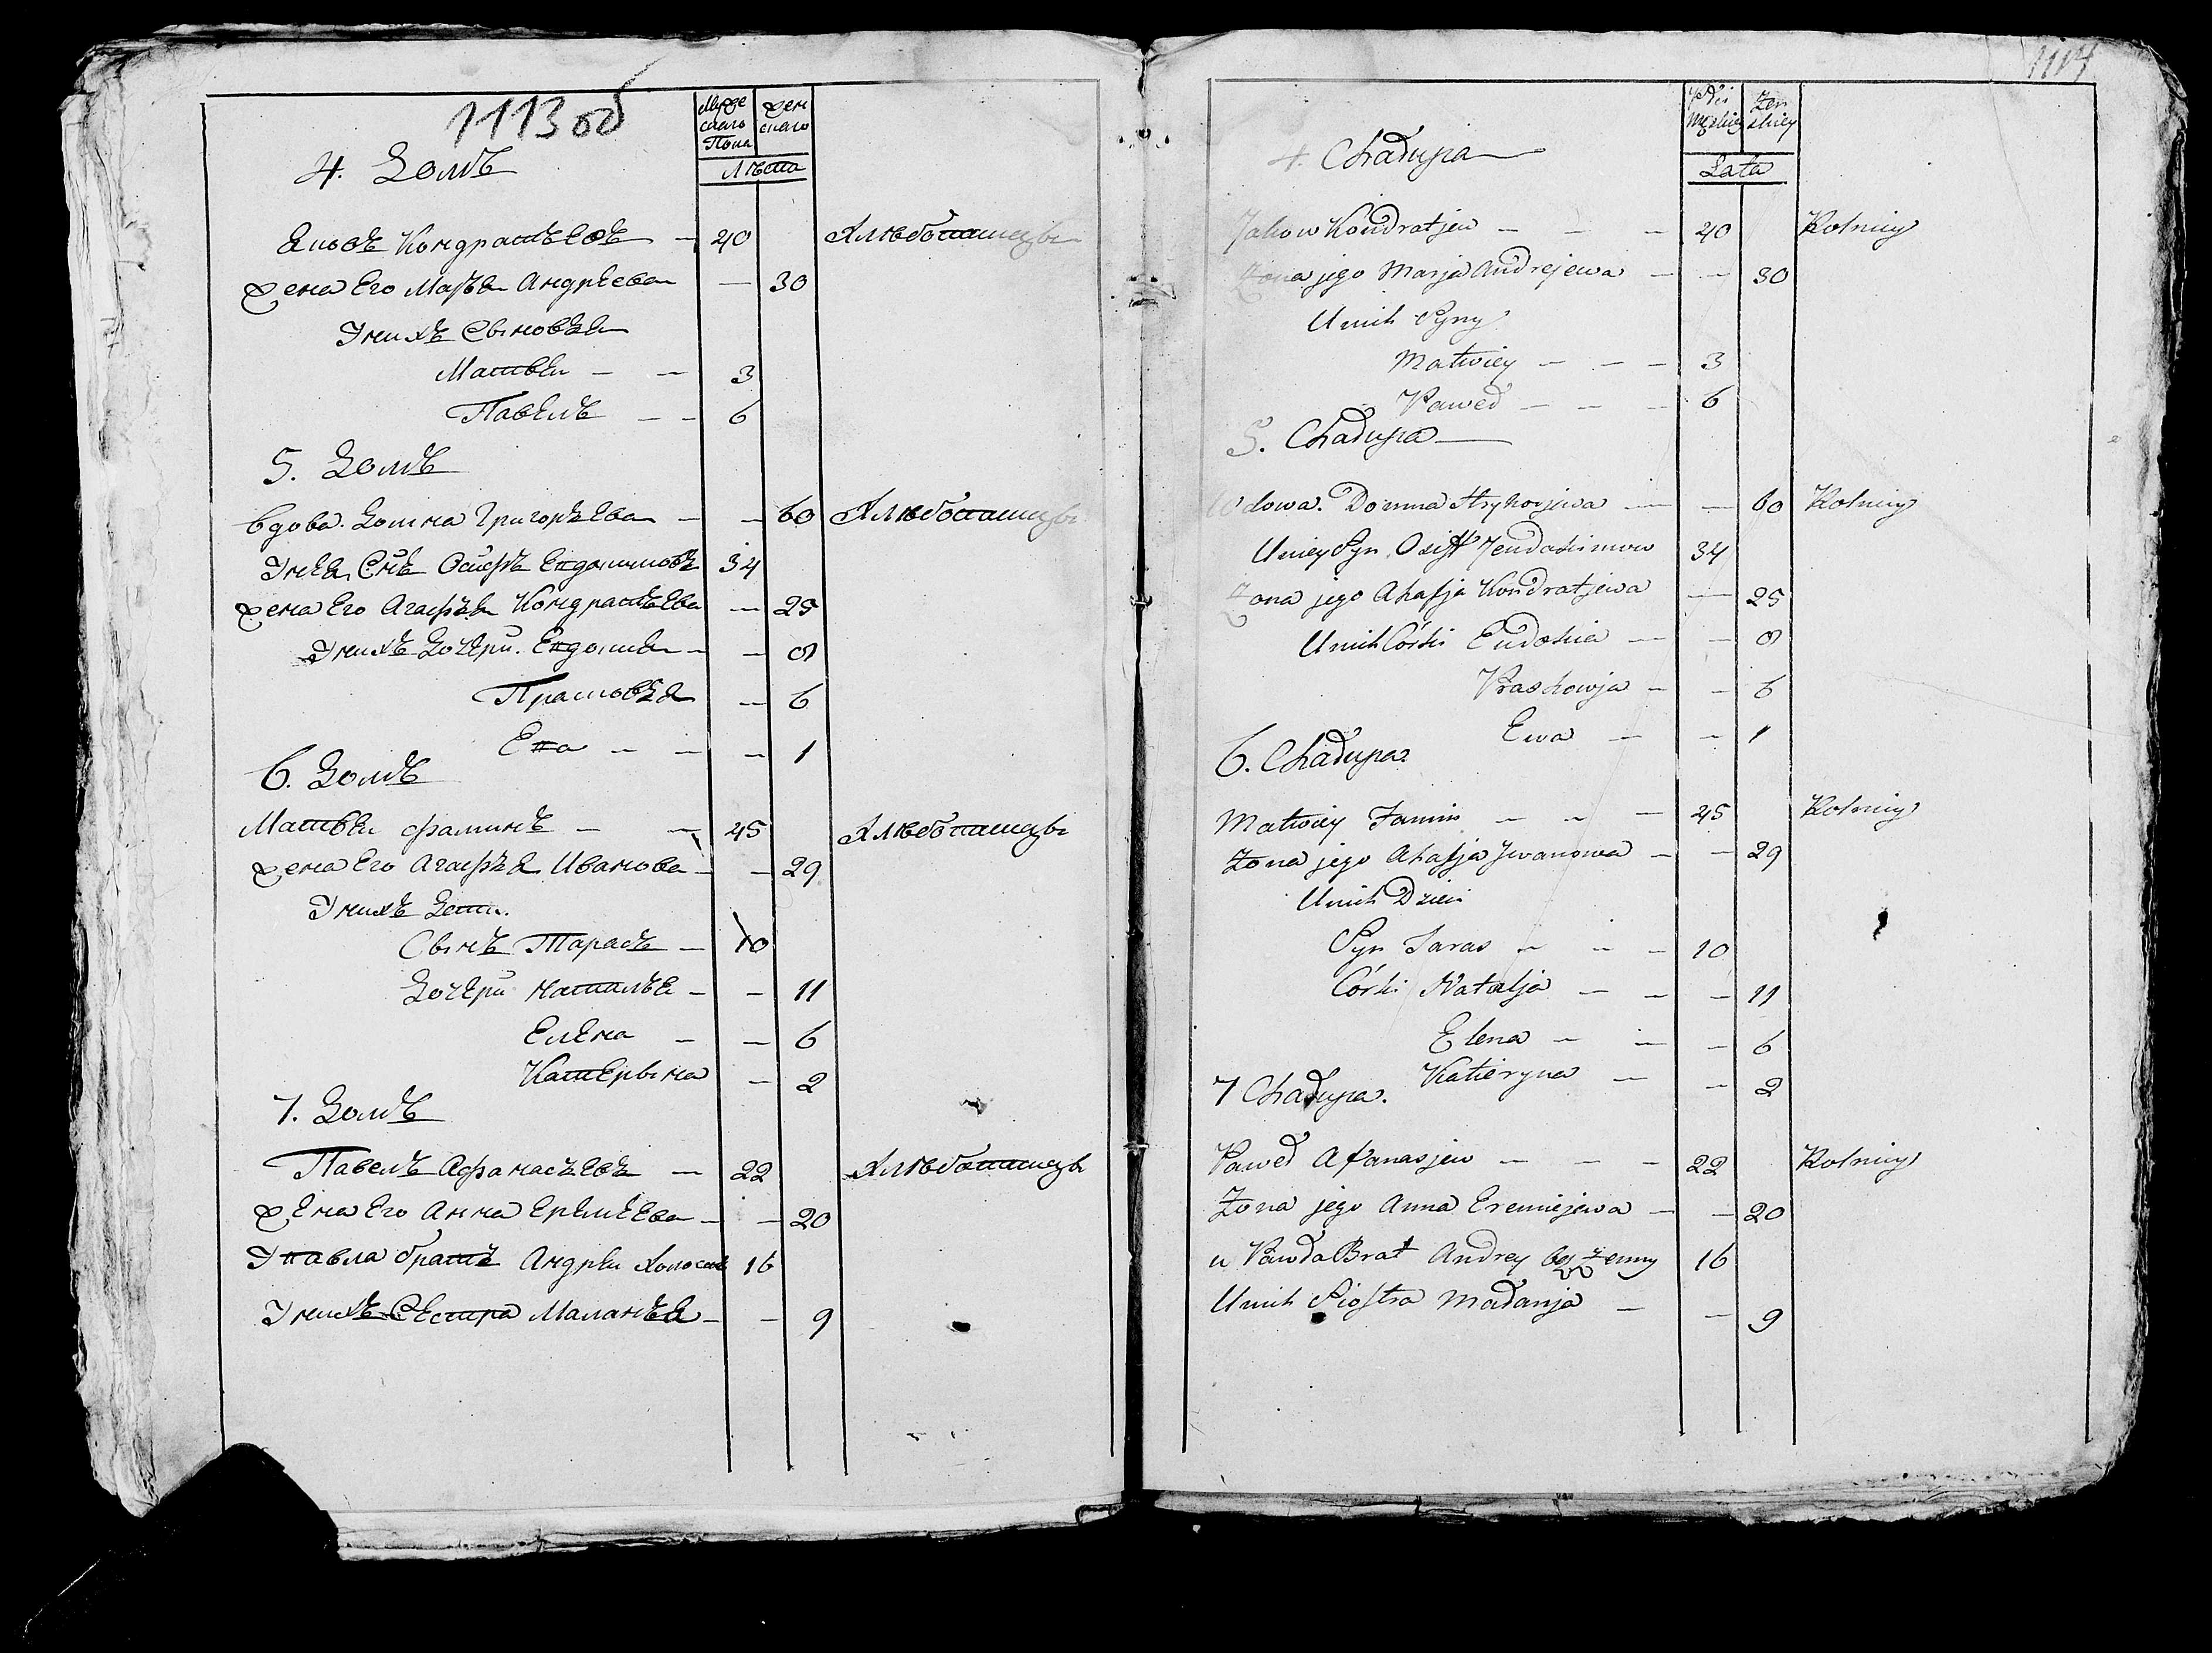 1113 об
Муже скаго Пола
Жен скаго
Лѣта
4. Домъ
Яковъ Кондратьевъ — 40 Хлѣбопашцы
Жена Его Марья Андрѣева — 30
У нихъ Сыновья
Матвѣи — — 3
Павелъ — — 6
5. Домъ
Вдова Домна Григорьева — — 60 Хлѣбопашцы
У нея Снъ Осифъ Евдокимовъ 34
Жена Его Агафья Кондратьева — 25
У нихъ Дочери Евдокия — — 8
Прасковья — 6
Ева — — — 1
6. Домъ
Матвѣи Фаминъ — — 45 Хлѣбопашцы
Жена Его Агафья Иванова — — 29
У нихъ Дети
Сынъ Тарасъ — 10
Дочери Наталья — — 11
Елена — — 6
Катерына — 2
7. Домъ
Павелъ Афанасьевъ — 22 Хлѣбопашцы
Жена Его Анна Еремѣева — — 20
У Павла братъ Андрѣи Холостъ 16
У нихъ Сестра Маланья — — 9
1114
Płci Męzkiey
Żen skiey
Lata
4. Chałupa
Jakow Kondratjew — — — 40 Rolnicy
Żona jego Marja Andrejewa — — 30
U nich Syny
Matwiey — — — 3
Paweł — — — 6
5. Chałupa
Wdowa Domna Hryhorjewa — — 60 Rolnicy
U niey Syn Osiff Jeudokimow 34
Żona jego Ahafja Kondratjewa — 25
U nich Córki Eudokia — — 8
Praskowja — — 6
Ewa — — 1
6. Chałupa
Matwiey Famin — — — 45 Rolnicy
Żona jego Ahafja Jwanowa — — 29
U nich Dzieci
Syn Taras — — — 10
Córki Natalja — — — 11
Elena — — — 6
Katieryna — — 2
7 Chałupa.
Paweł Afanasjew — — — 22 Rolnicy
Żona jego Anna Eremiejewa — — 20
u Pawła Brat Andrey bezżenny 16
U nich Siostra Małanja — — 9